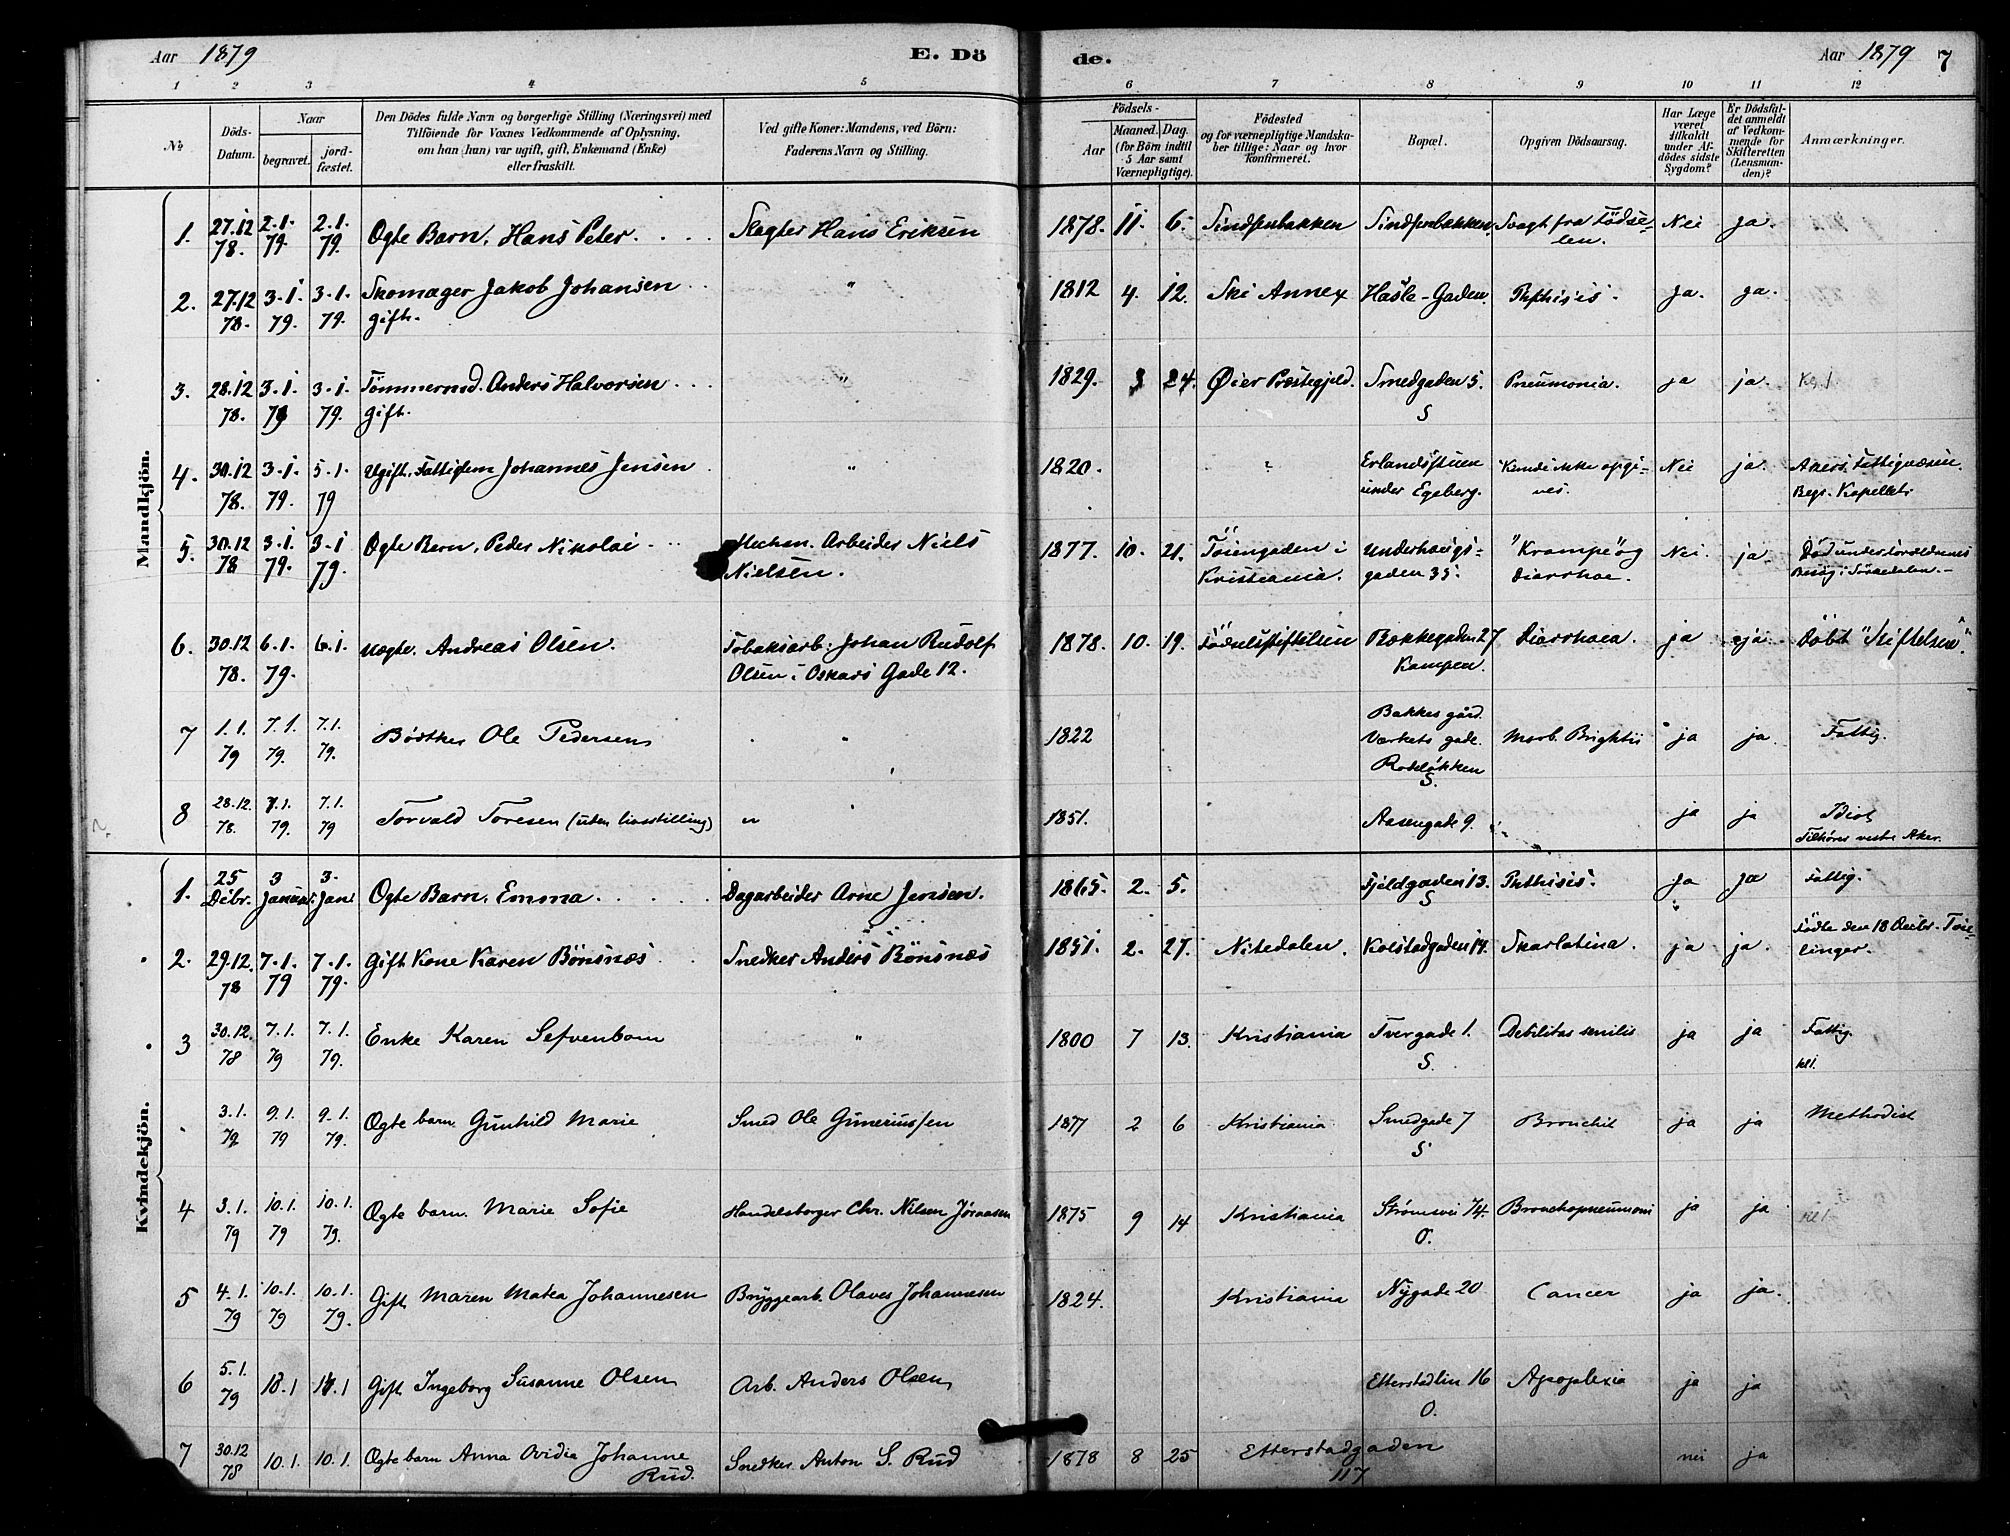 Aar 1879 E. Dö de. Aar 1879 7
1 2 3 4 5 6 7 8 9 10 11 12
No
Döds-Datum.
Naar
begravet.
jordfæstet.
Den Dödes fulde Navn og borgerlige Stilling (Næringsvei) med
Tilföiende for Voxnes Vedkommende af Oplysning,
om han (hun) var ugift, gift, Enkemand (Enke)
eller fraskilt.
Ved gifte Koner: Mandens, ved Börn:
Faderens Navn og Stilling.
Födsels-
Aar
Maaned. Dag.
(for Börn indtil
5 Aar samt
Værnepligtige).
Födested
og for værnepligtige Mandska-
ber tillige: Naar og hvor
konfirmeret.
Bopæl.
Opgiven Dödsaarsag.
Har Læge
været
tilkaldt
under Af-
dödes sidste
Sygdom?
Er Dödsfal-
det anmeldt
af Vedkom-
mende for
Skifteretten
(Lensman-
den)?
Anmærkninger.
Mandkjön.
1. 27.12 2.1. 2.1. Ægte Barn. Hans Peter. Slagter Hans Eriksen 1878. 11. 6. Svagt fra Födse- Nei ja.
78. 79. 79. len.
2. 27.12 3.1. 3.1. Skomager Jakob Johansen " 1812 4. 12. Ski Annex Hasle-Gaden. Phthisis. ja. ja.
78. 79. 79. gift.
3. 28.12 3.1. 3.1. Tömmermd. Anders Halvorsen " 1829. 3 24. Øier Præstegjeld. Smedgaden 5. Pneumonia. ja ja.
78. 79 79. gift. S
4. 30.12 3.1. 5.1. Ugift. Fattiglem Johannes Jensen " 1820. " Erlandsstuen Kunde ikke opgi- Nei ja. Akers Fattigvæsen.
78. 79. 79 under Egeberg. ves. Begr. Kapellet.
5. 30.12 3.1. 3.1 Ægte Barn. Peder Nikolai Mechan. Arbeider Niels 1877. 10. 21. Töiengaden i Underhaugs- "Krampe" og Nei. ja. Död under Forældrenes
78 79. 79. Nielsen. Kristiania. gaden 35. Diarrhoe. Besög i Sörkedalen.
6. 30.12 6.1. 6.1. Uægte. Andreas Olsen. Tobaksarb. Johan Rudolf 1878. 10. 19. Födselsstiftelsen Bækkegaden 27 Diarrhoea. ja ja Döbt "Stiftelsen".
78. 79. Olsen i Oskars Gade 12. Kampen.
7 1.1. 7.1. 7.1. Bödtker Ole Pedersen 1822 Bakkes gård. Morb. Brightii ja ja. Fattig.
79 79. 79. Værkets gade.
Rodeløkken
S.
8 28.12. 7.1. 7.1. Torvald Toresen (uden livsstilling) " 1851. Aasengade 9. ja ja Idiot
78. 79. 79 Tilhører vestre Aker.
Kvindekjön.
1. 25 3 3. Ægte Barn. Emma. Dagarbeider Arne Jensen. 1865. 2. 5. Fjeldgaden 13. Phthisis. ja ja Fattig.
Decbr. Januar. Jan. S
2. 29.12. 7.1. 7.1. Gift Kone Karen Bönsnæs Snedker Anders Bönsnæs 1851. 2. 27. Nitedalen. Kolstadgaden 14. Skarlatina. ja ja. Födte den 18 Decbr. Tvil-
78 79 79. linger.
3 30.12. 7.1. 7.1. Enke Karen Sefvenbom " 1800 7 13. Kristiania Tvergade 1. Debilitas senilis ja ja Fattig.
78 79 79. S. kl 1.
3.1. 9.1. 9.1. Ægte barn Gunhild Marie Smed Ole Guneriussen 1877 2 6 Kristiania Smedgade 7 Bronchit ja ja Methodist
79 79 79. S
4 3.1. 10.1. 10.1. Ægte barn. Marie Sofie Handelsborger Chr. Nilsen Jønassen 1875 9 14 Kristiania Strømsvei 74. Bronchopneumoni ja ja kl 1
79 79 79. O.
5 4.1. 10.1. 10.1. Gift Maren Matea Johannesen Bryggearb. Olaves Johannesen 1824. Kristiania Nygade 20 Cancer ja ja.
79 79 79.
6 5.1. 18.1 18.1 Gift Ingeborg Susanne Olsen Arb. Anders Olsen Etterstadlin 16 Apoplexia ja ja
79 O.
7 30.12 10.1. 10.1. Ægte barn Anna Ovidia Johanne Snedker Anton S. Rud 1878 8 25 Etterstadgaden nei ja
78 Rud. 117